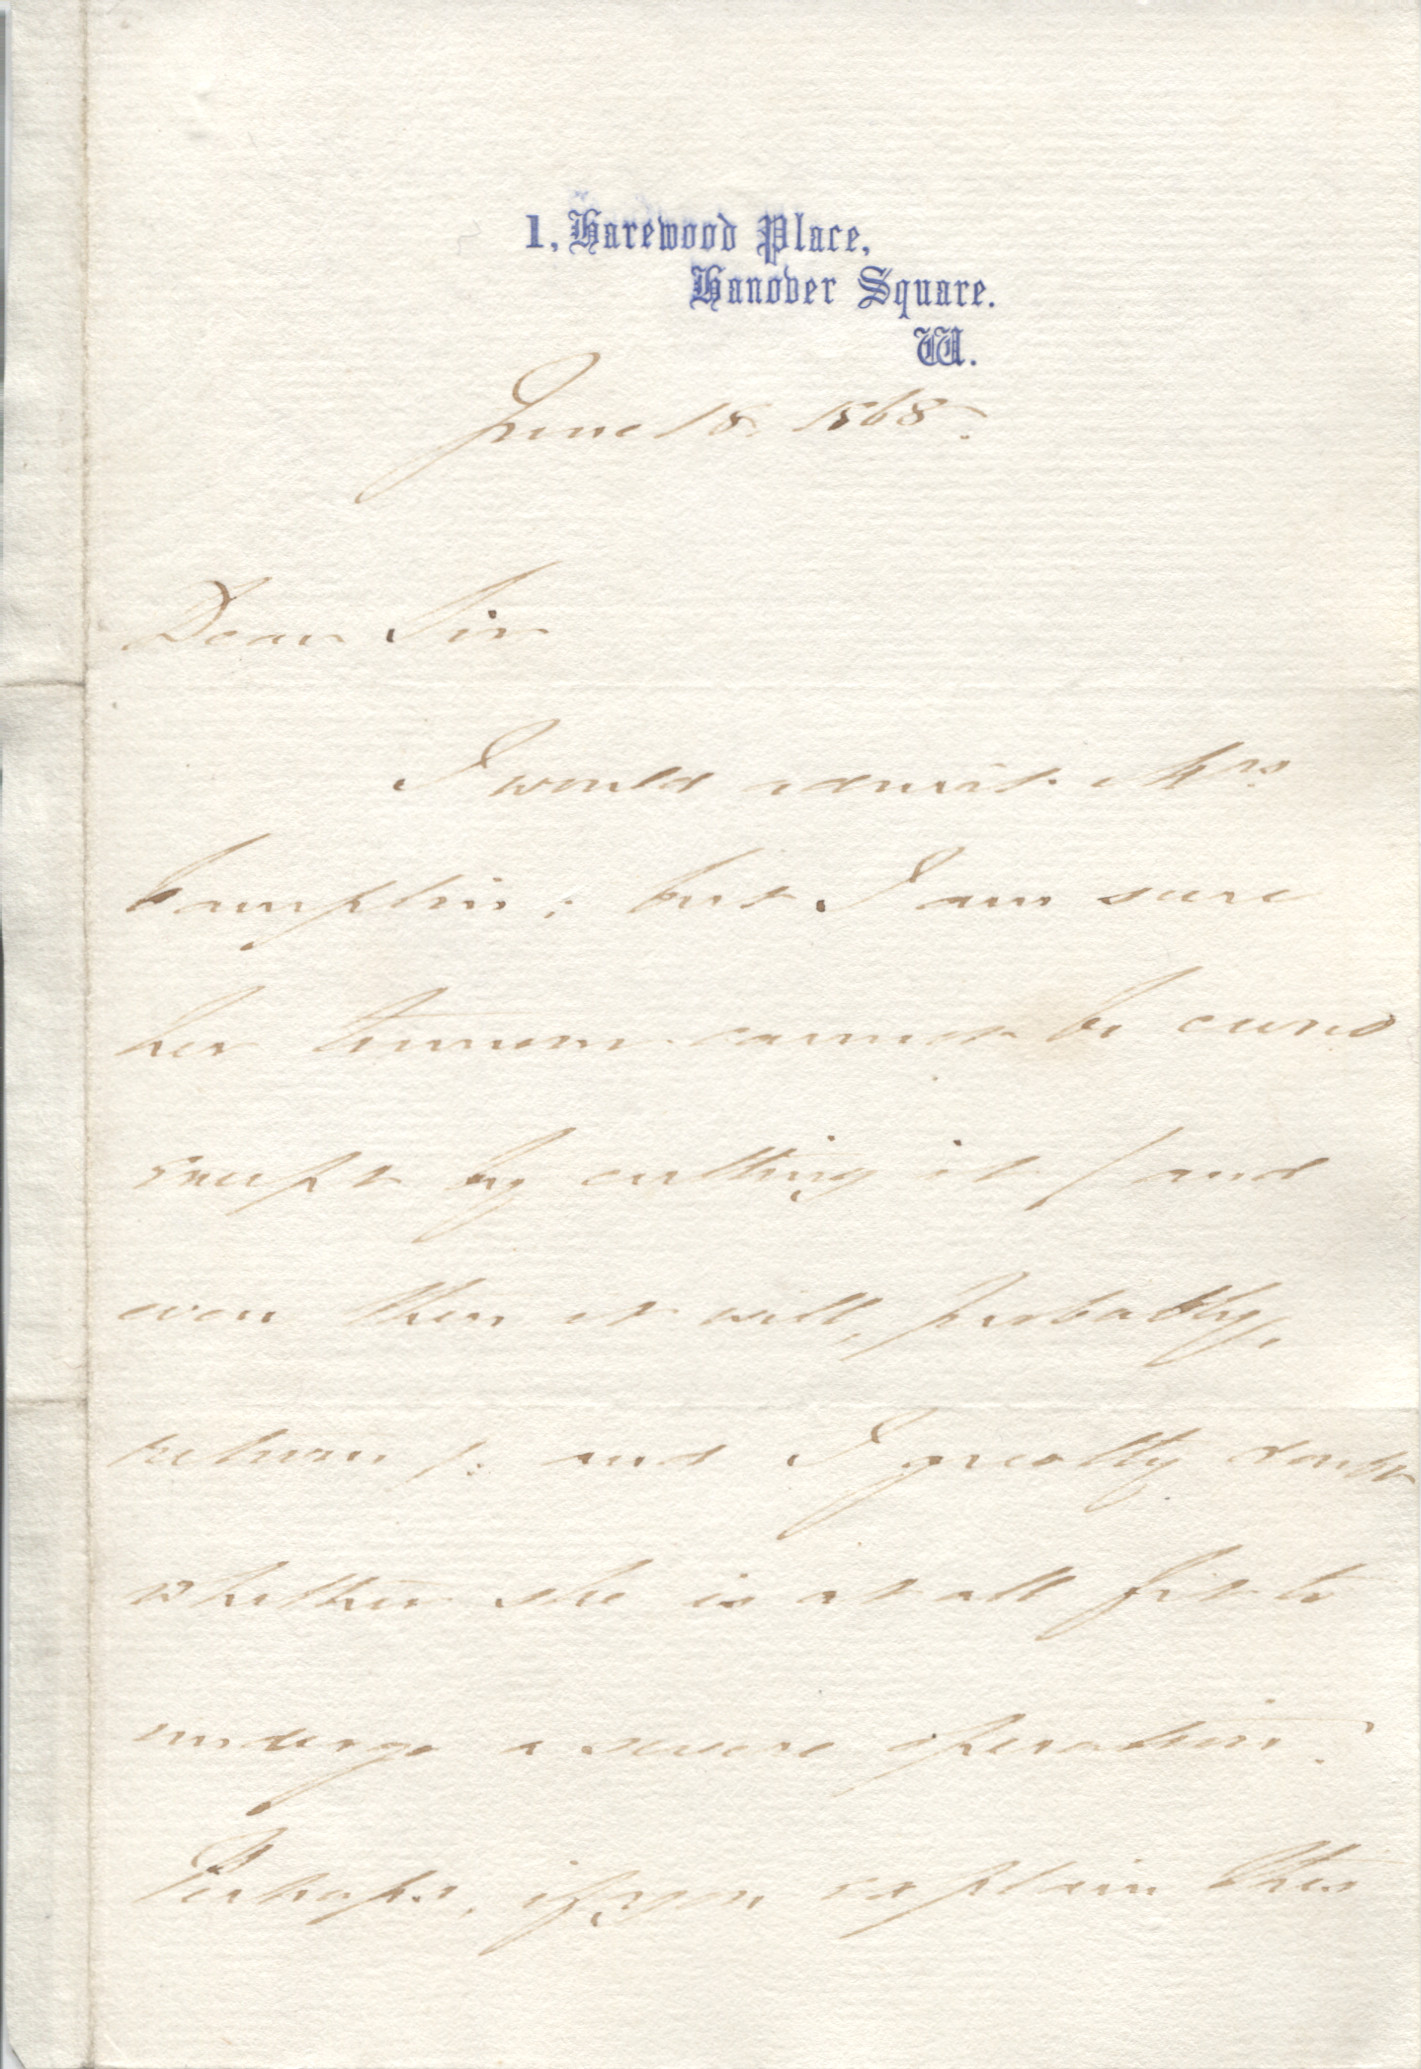 1, Harewood Place,
Hanover Square.
W.
June 18. 1868.
Dear Sir
I would admit Mrs
Camplin; but I am sure
her tumour cannot be cured
except by cutting it (and
even then it will, probably,
return): and I greatly doubt
whether she is at all fit to
undergo a severe operation.
Perhaps, if you explain this